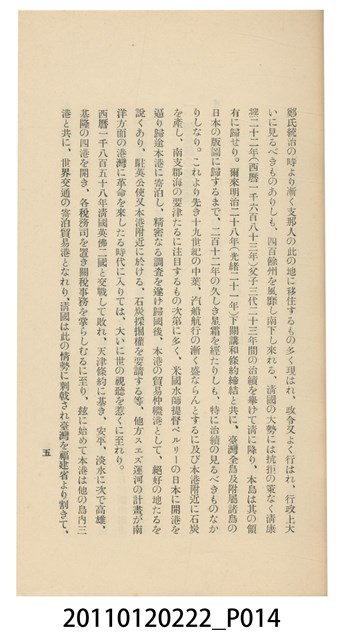 鄭氏統治の時より漸く支那人の此の地に移住するもの多く現はれ、政令又よく行はれ、行政上大
いに見るべきものありしも、四百餘州を風靡し南下し來れる、清國の大勢には抗拒の策なく清康
熙二十二年(西曆一千六百八十三年)父子三代二十三年間の治績を擧げて清に降り、本島は其の領
有に歸せり。爾來明治二十八年(光緒二十一年)下關講和條約締結と共に、臺灣全島及附屬諸島の
日本の版圖に歸するまで、二百十二年の久しき星霜を經たりしも、特に治績の見るべきものなか
りしなり。これより先き十九世紀の中葉、汽船航行の漸く盛ならんとするに及び本港附近に石炭
を產し、南支那海の要津たるに注目するもの次第に多く、米國水師提督ペルリーの日本に開港を
逼り歸途本港に寄泊し、精密なる調査を遂げ歸國後、本港の貿易仲繼港として、絕好の地たるを
說くあり、駐英公使又本港附近に於ける、石炭採掘權を要請する等、他方スエズ運河の計畫が南
洋方面の港灣に革命を來したる時代に入りては、大いに世の視聽を惹くに至れり。
西曆一千八百五十八年清國英佛二國と交戰して敗れ、天津條約に基き、安平、淡水に次で高雄、
基隆の四港を開き、各稅務司を置き關稅事務を掌らしむるに至り、玆に始めて本港は他の島內三
港と共に、世界交通の寄泊貿易港となれり、清國は此の情勢に刺戟され臺灣を福建省より割きて、
五
20110120222_P014